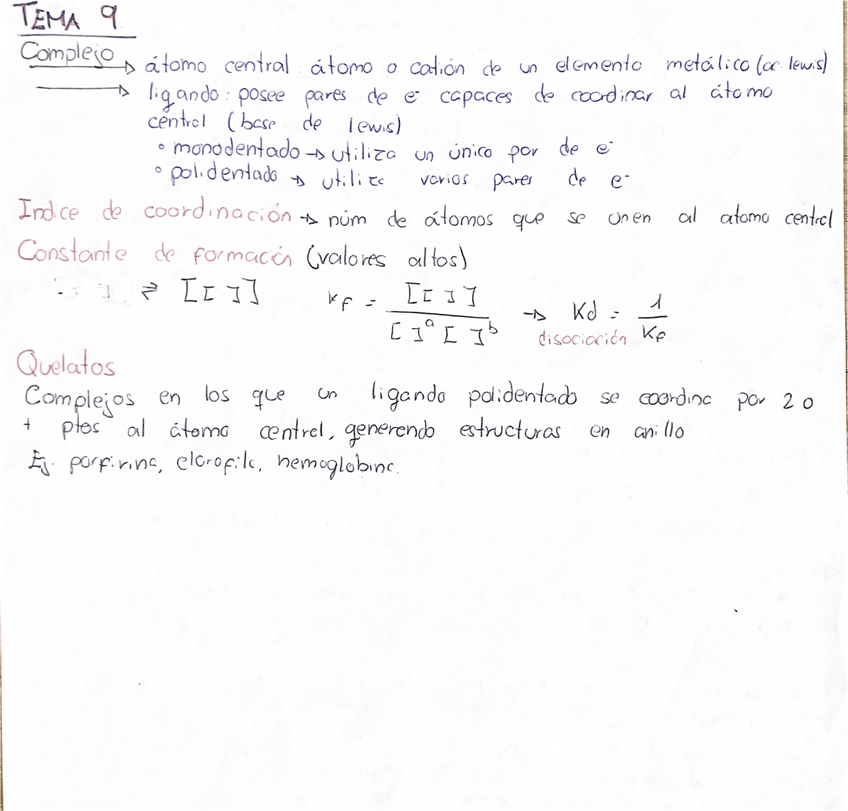 TEMA 9
Complejo → átomo central átomo o catión de un elemento metálico (ac lewis)
→ ligando: posee pares de e- capaces de coordinar al átomo
central (base de lewis)
• monodentado → utiliza un único par de e-
• polidentado → utiliza varios pares de e-
Indice de coordinación → núm de átomos que se unen al atomo central
Constante de formación (valores altos)
⇌ [[ ]] Kf = [[ ]] / [ ]ᵃ [ ]ᵇ → Kd = 1 / Kf
disociación
Quelatos
Complejos en los que un ligando polidentado se coordina por 2 o
+ ptos al átomo central, generando estructuras en anillo
Ej. porfirina, clorofila, hemoglobina.